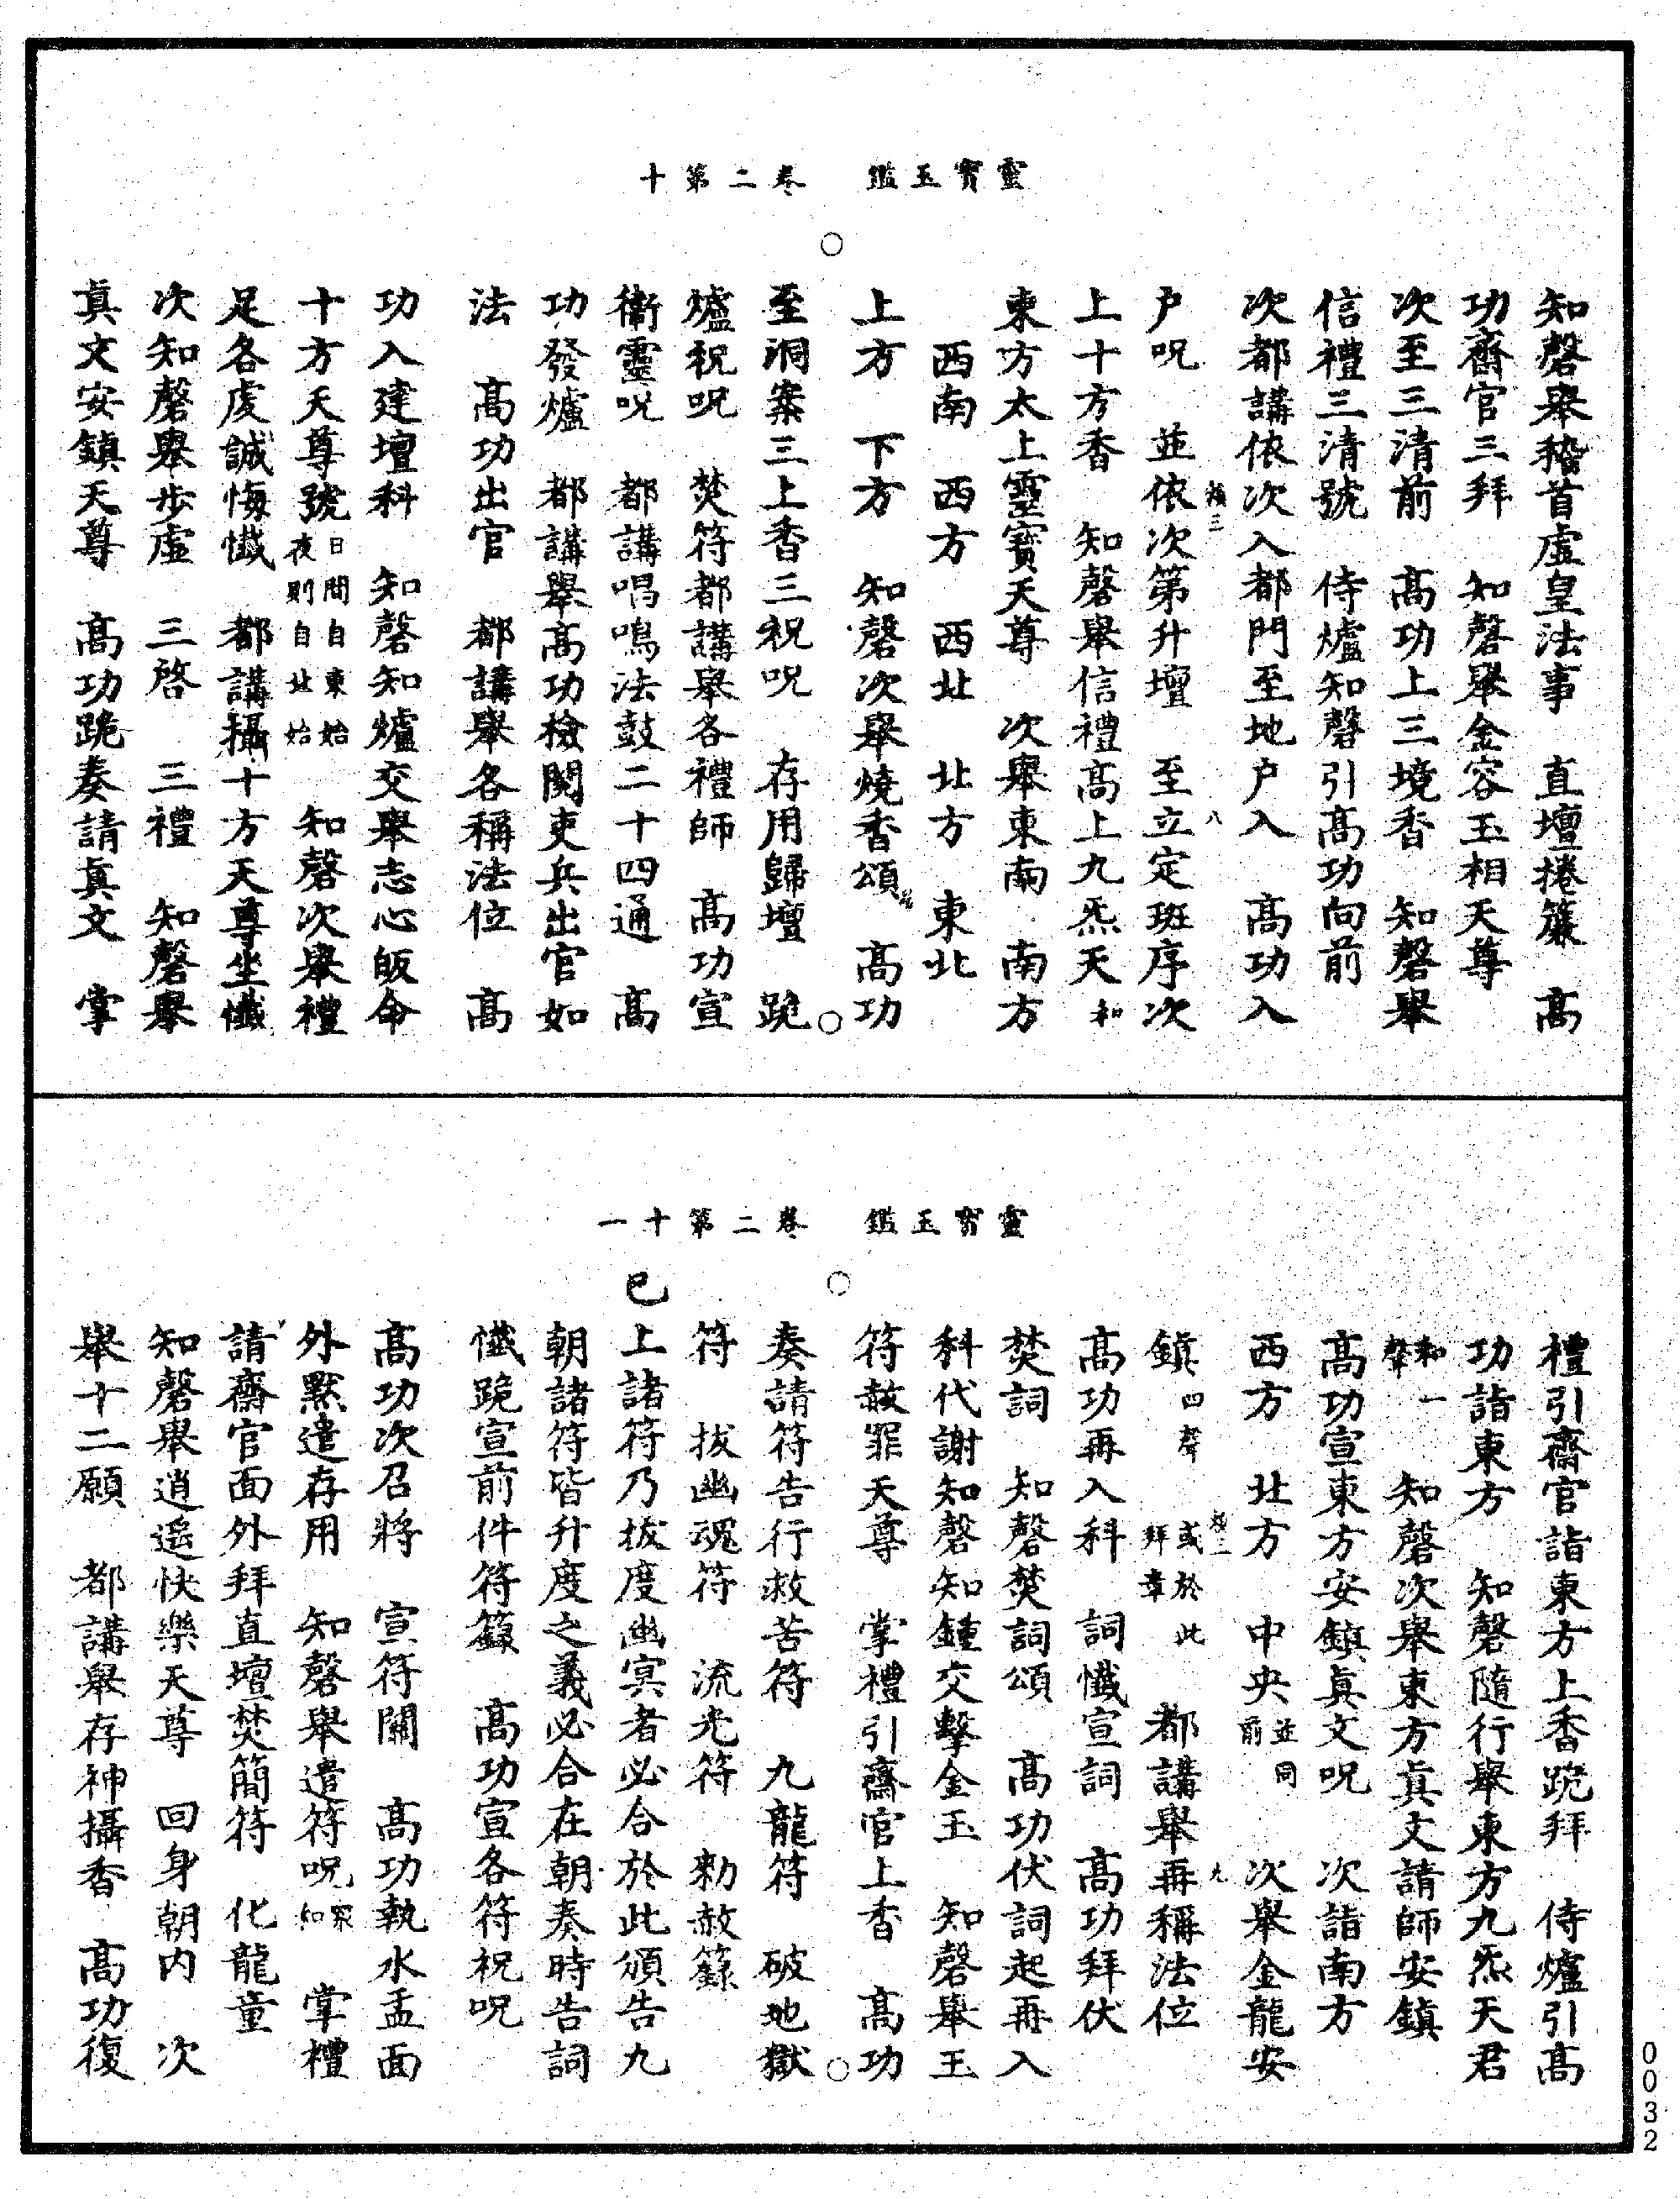 靈寶玉鑑　卷二第十
知磬舉稽首虛皇法事　直壇捲簾　高
功齋官三拜　知磬舉金容玉相天尊
次至三清前　高功上三境香　知磬舉
信禮三清號　侍爐知磬引高功向前
次都講依次入都門至地戶入　高功入
戶呪　並依次第升壇　至立定班序次
上十方香　知磬舉信禮高上九炁天和
東方太上靈寶天尊　次舉東南　南方
西南　西方　西北　北方　東北
上方　下方　知磬次舉燒香頌　高功
至洞案三上香三祝呪　存用歸壇　跪
爐祝呪　焚符都講舉各禮師　高功宣
衛靈呪　都講唱鳴法鼓二十四通　高
功發爐　都講舉高功檢閱吏兵出官如
法　高功出官　都講舉各稱法位　高
功入建壇科　知磬知爐交舉志心皈命
十方天尊號日間自東始夜則自北始　知磬次舉禮
足各虔誠悔懺　都講攝十方天尊坐懺
次知磬舉步虛　三啓　三禮　知磬舉
真文安鎮天尊　高功跪奏請真文　掌
靈寶玉鑑　卷二第十一
禮引齋官詣東方上香跪拜　侍爐引高
功詣東方　知磬隨行舉東方九炁天君
和一聲　知磬次舉東方真文請師安鎮
高功宣東方安鎮真文呪　次詣南方
西方　北方　中央並同前　次舉金龍安
鎮四聲　或於此拜章　都講舉再稱法位
高功再入科　詞懺宣詞　高功拜伏
焚詞　知磬焚詞頌　高功伏詞起再入
科代謝知磬知鐘交擊金玉　知磬舉玉
符赦罪天尊　掌禮引齋官上香　高功
奏請符告行救苦符　九龍符　破地獄
符　拔幽魂符　流光符　勑赦籙
已上諸符乃拔度幽冥者必合於此頒告九
朝諸符皆升度之義必合在朝奏時告詞
懺跪宣前件符籙　高功宣各符祝呪
高功次召將　宣符關　高功執水盂面
外默遣存用　知磬舉遣符呪眾和　掌禮
請齋官面外拜直壇焚簡符　化龍童
知磬舉逍遙快樂天尊　回身朝內　次
舉十二願　都講舉存神攝香　高功復
0032